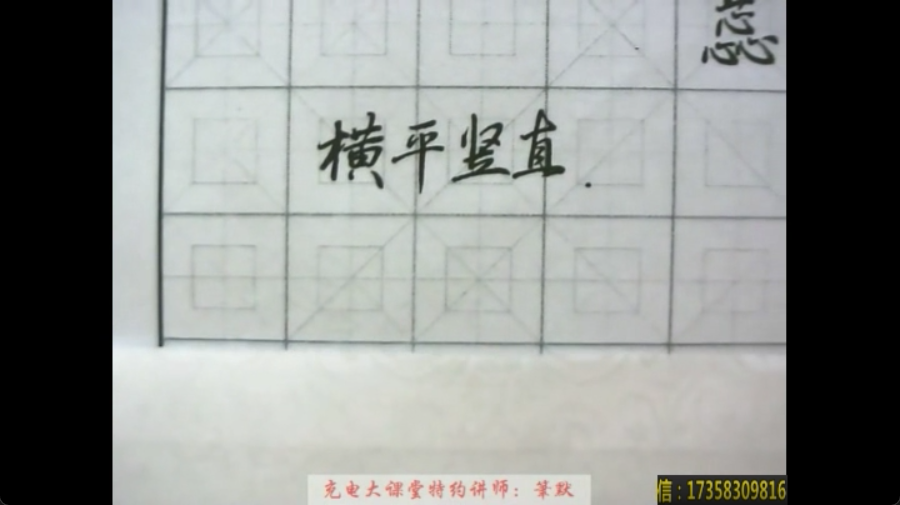 横平竖直.
充电大课堂特约讲师：筆默
信：17358309816